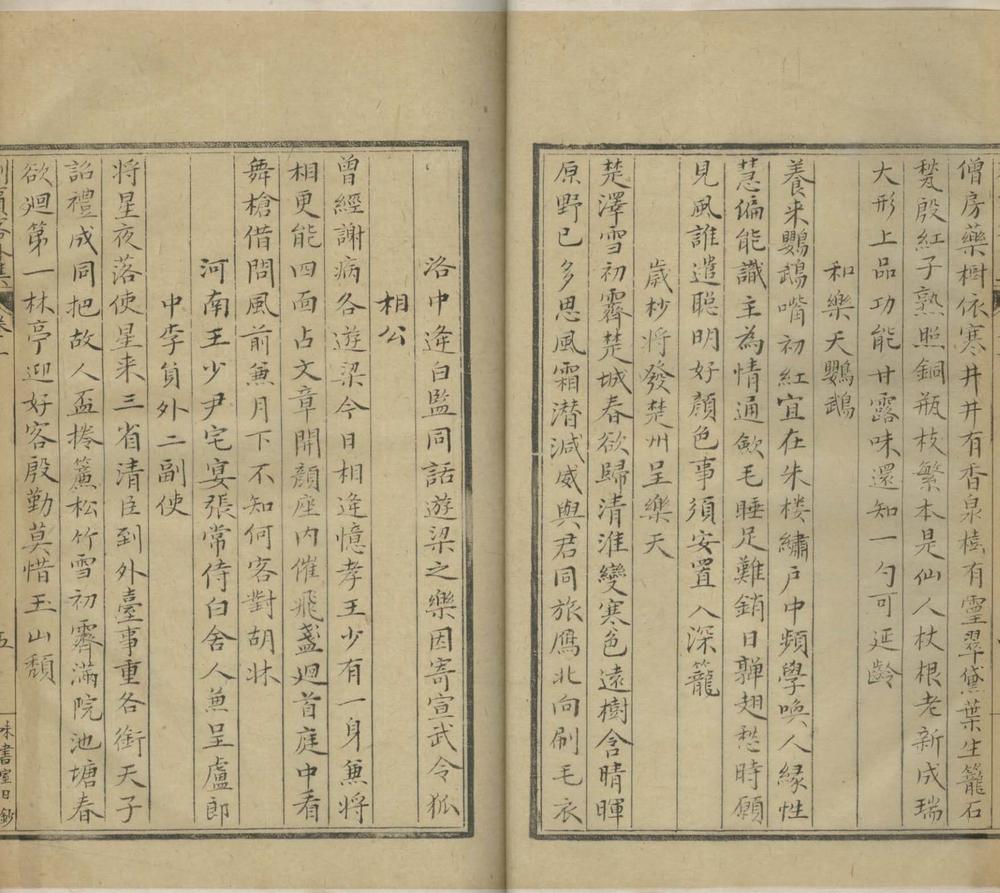 僧房藥樹依寒井井有香泉樹有靈翠黛葉生籠石
甃殷紅子熟照銅瓶枝繁本是仙人杖根老新成瑞
犬形上品功能甘露味還知一勺可延齡
和樂天鸚鵡
養来鸚鵡嘴初紅宜在朱楼繡戶中頻學喚人緣性
慧偏能識主為情通歛毛睡足難銷日嚲翅愁時願
見風誰遣聰明好顏色事須安置入深籠
歲杪將發楚州呈樂天
楚澤雪初霽楚城春欲歸清淮變寒色遠樹含晴暉
原野已多思風霜潜減威與君同旅鴈北向刷毛衣
洛中逢白監同話遊梁之樂因寄宣武令狐
相公
曾經謝病各遊梁今日相逢憶孝王少有一身兼將
相更能四面占文章開顏座內催飛盞迴首庭中看
舞槍借問風前兼月下不知何客對胡牀
河南王少尹宅宴張常侍白舍人兼呈盧郎
中李負外二副使
将星夜落使星来三省清臣到外臺事重各銜天子
詔禮成同把故人盃捲簾松竹雪初霽滿院池塘春
欲廻第一林亭迎好客殷勤莫惜玉山頹
劉賔客外集
卷一
五
味書室日鈔